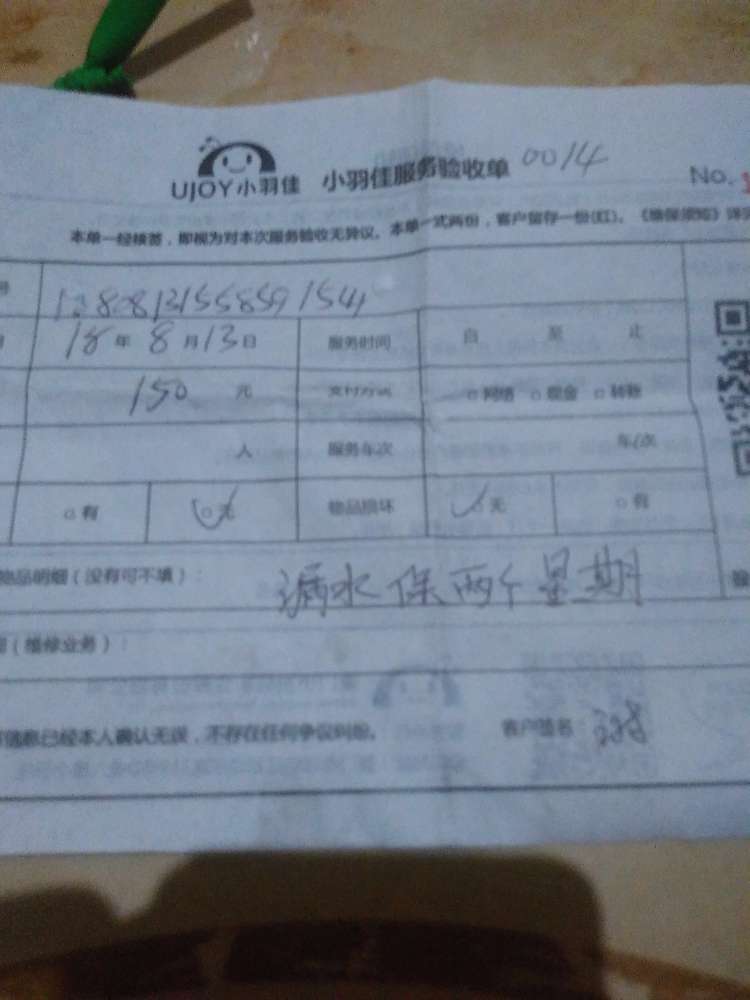 UJOY小羽佳 小羽佳服务验收单 0014 No.
本单一经核签，即视为对本次服务验收无异议。本单一式两份，客户留存一份(红)。《维保须知》详见
18年8月13日 服务时间 自 至 止
150元 支付方式 □网络 □现金 □转账
人 服务车次 车/次
□有 □无 物品损坏 □无 □有
物品明细（没有可不填）： 漏水保两个星期
（维修业务）：
信息已经本人确认无误，不存在任何争议纠纷。 客户签名